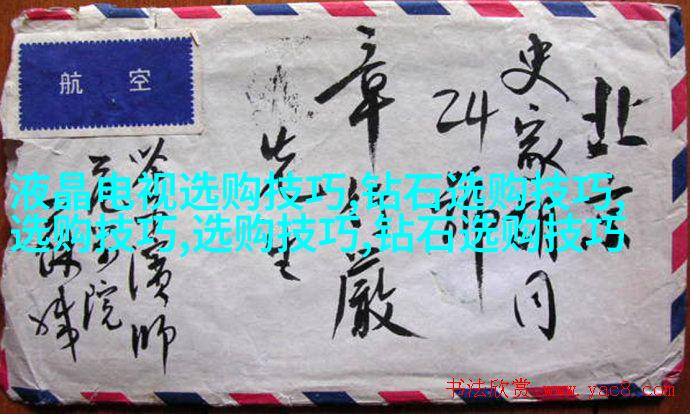 航 空
北京
史家胡同
24
章行嚴
先生
濱師
院
液晶电视选购技巧,钻石选购技巧,
选购技巧,选购技巧,钻石选购技巧
书法欣赏 www.yac8.com